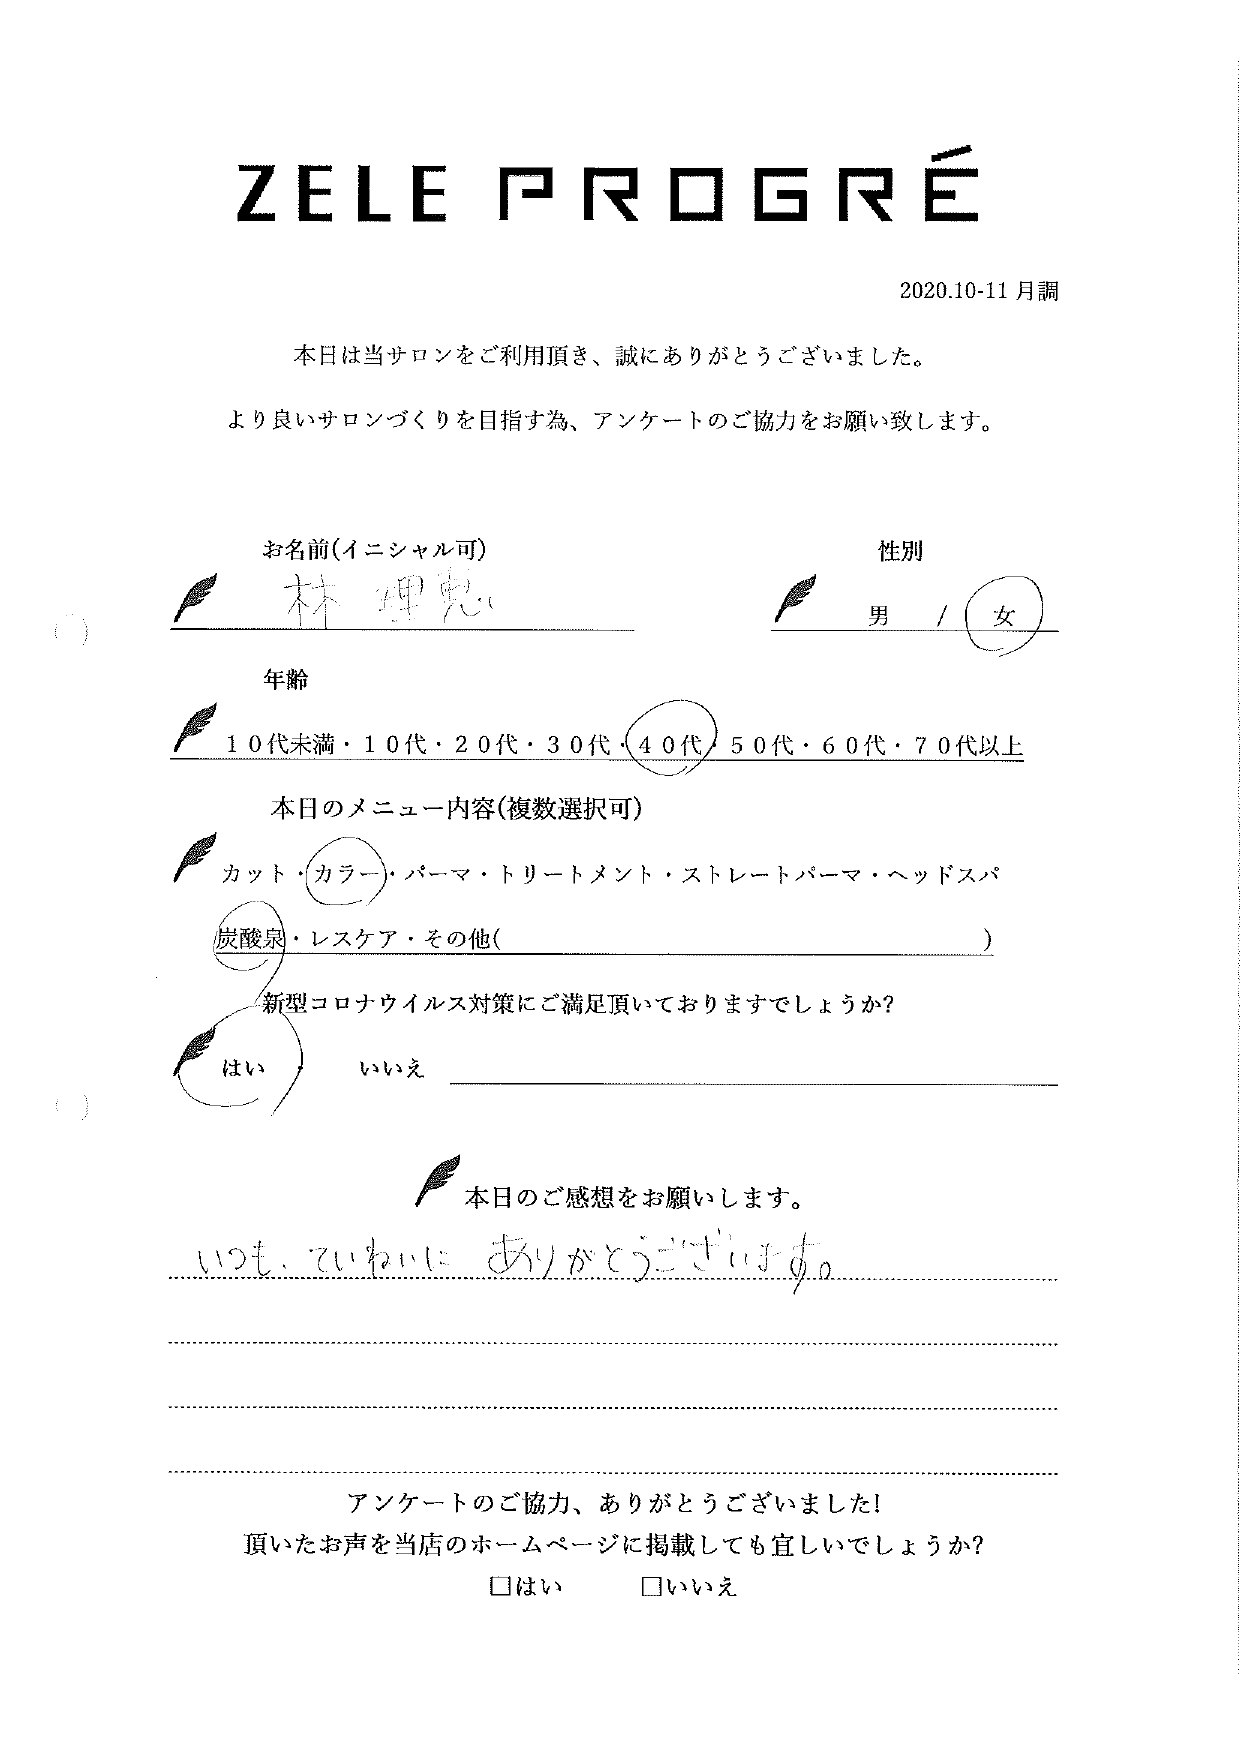 ZELE PROGRÉ
2020.10-11 月調
本日は当サロンをご利用頂き、誠にありがとうございました。
より良いサロンづくりを目指す為、アンケートのご協力をお願い致します。
お名前(イニシャル可) 性別
林 理恵 男 / 女
年齢
１０代未満・１０代・２０代・３０代・４０代・５０代・６０代・７０代以上
本日のメニュー内容(複数選択可)
カット・カラー・パーマ・トリートメント・ストレートパーマ・ヘッドスパ
炭酸泉・レスケア・その他( )
新型コロナウイルス対策にご満足頂いておりますでしょうか?
はい ・ いいえ
本日のご感想をお願いします。
いつも、ていねいに ありがとうございます。
アンケートのご協力、ありがとうございました!
頂いたお声を当店のホームページに掲載しても宜しいでしょうか?
□はい □いいえ